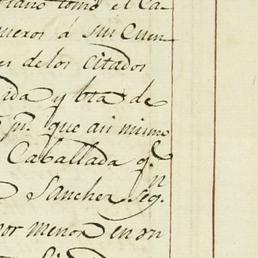 como el Ca-
queros á sus Cuen
es delos citados
ida y bta de
que asi mismo
Caballada q.e
Sanchez seg.n
por menor en